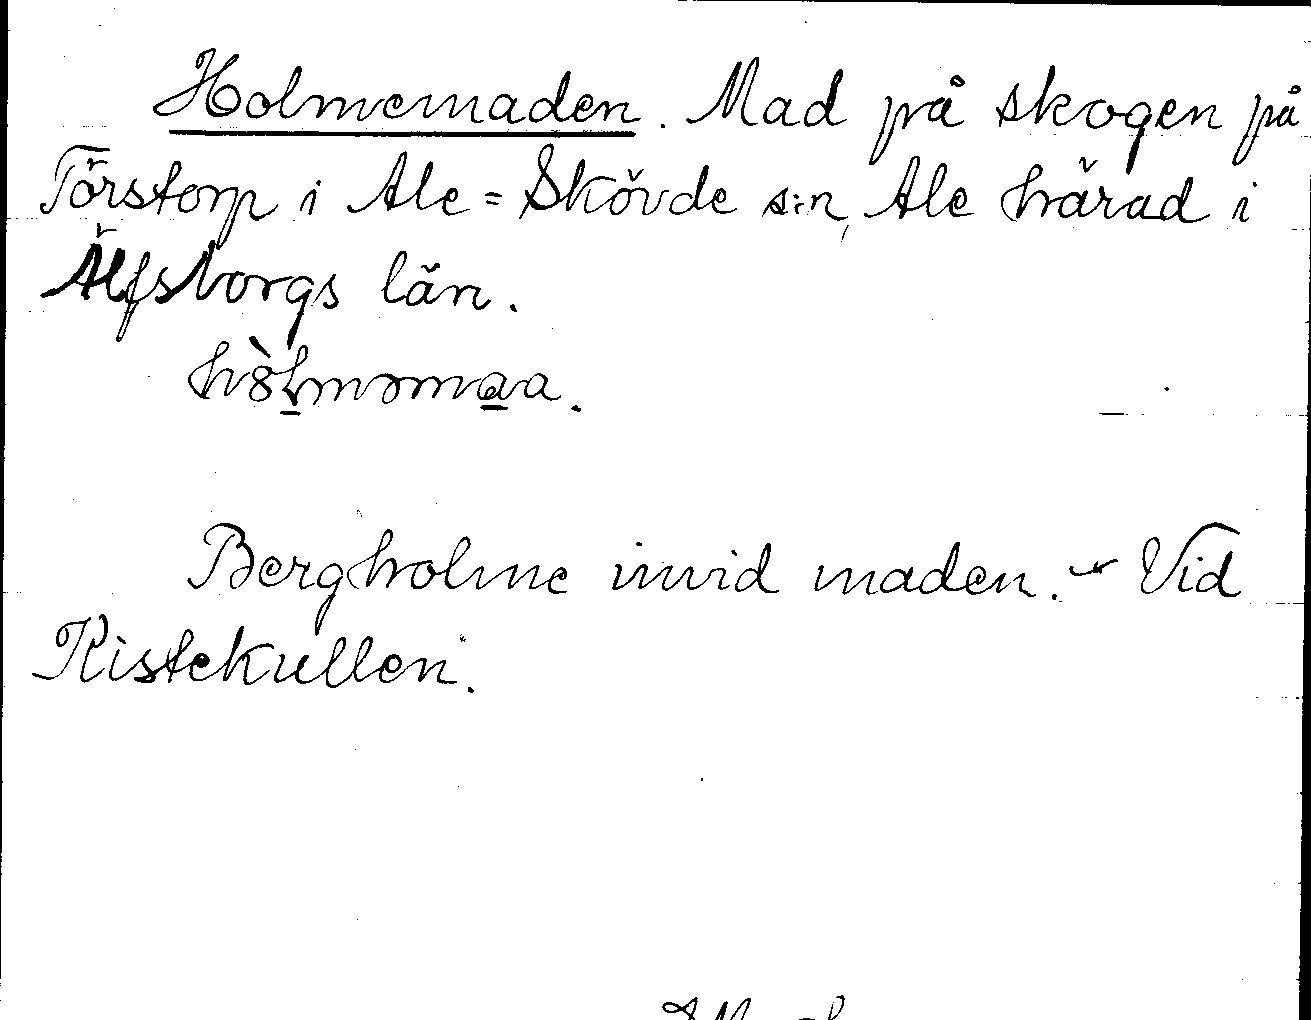 Holmemaden. Mad på skogen på
Törstorp i Ale=Skövde s:n, Ale härad i
Älfsborgs län.
Bergholme invid maden. - Vid
Kistekullen.